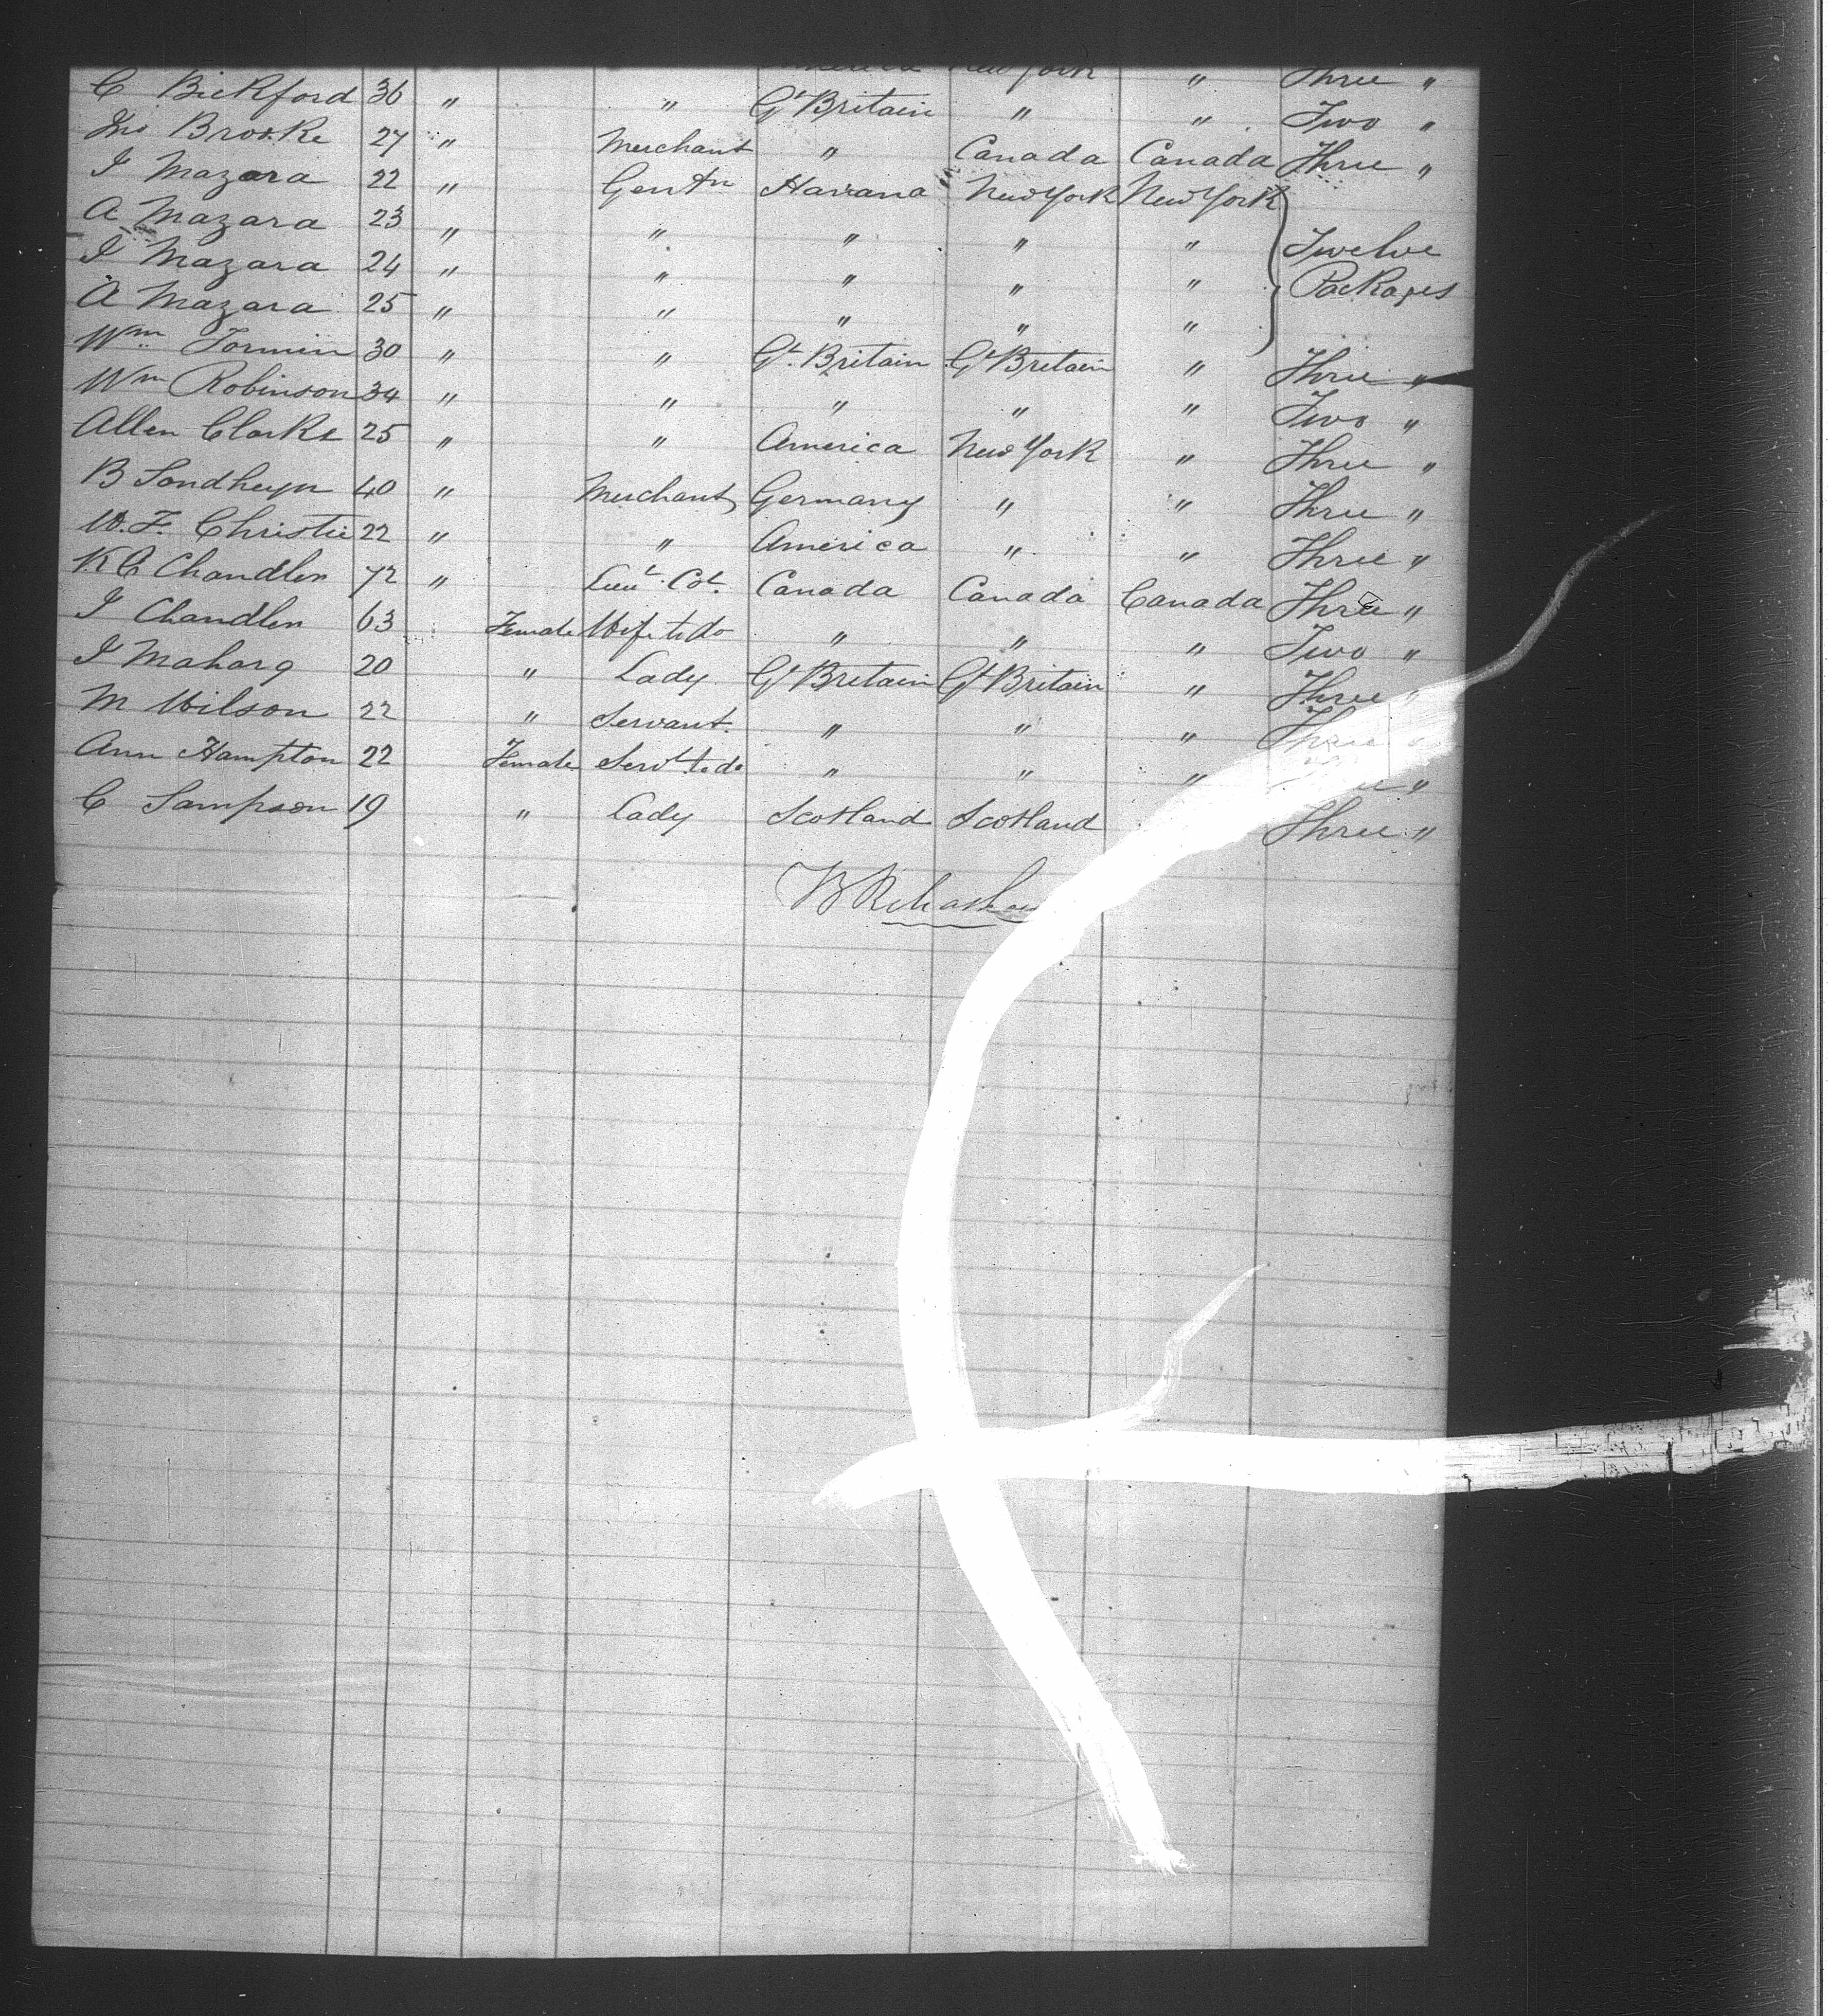 New York " Three "
C Bickford 36 " " Gt Britain " " Two "
Jno Brooke 27 " Merchant " Canada Canada Three "
I Mazara 22 " Gentn Havana New York New York
A Mazara 23 " " " " "
Twelve
I Mazara 24 " " " " "
Packages
A Mazara 25 " " " " "
Wm Formin 30 " " Gt. Britain Gt Britain " Three "
Wm Robinson 34 " " " " " Two "
Allen Clarke 25 " " America New York " Three "
B Sondheym 40 " Merchant Germany " " Three "
W. F. Christie 22 " " America " " Three "
K C Chandler 72 " Lieut. Col. Canada Canada Canada Three "
I Chandler 63 Female Wife to do " " " Two "
I Maharg 20 " Lady Gt Britain Gt Britain " Three "
M Wilson 22 " Servant. " " " Three "
Ann Hampton 22 Female Servt to do " " " "
C Sampson 19 " Lady Scotland Scotland Three "